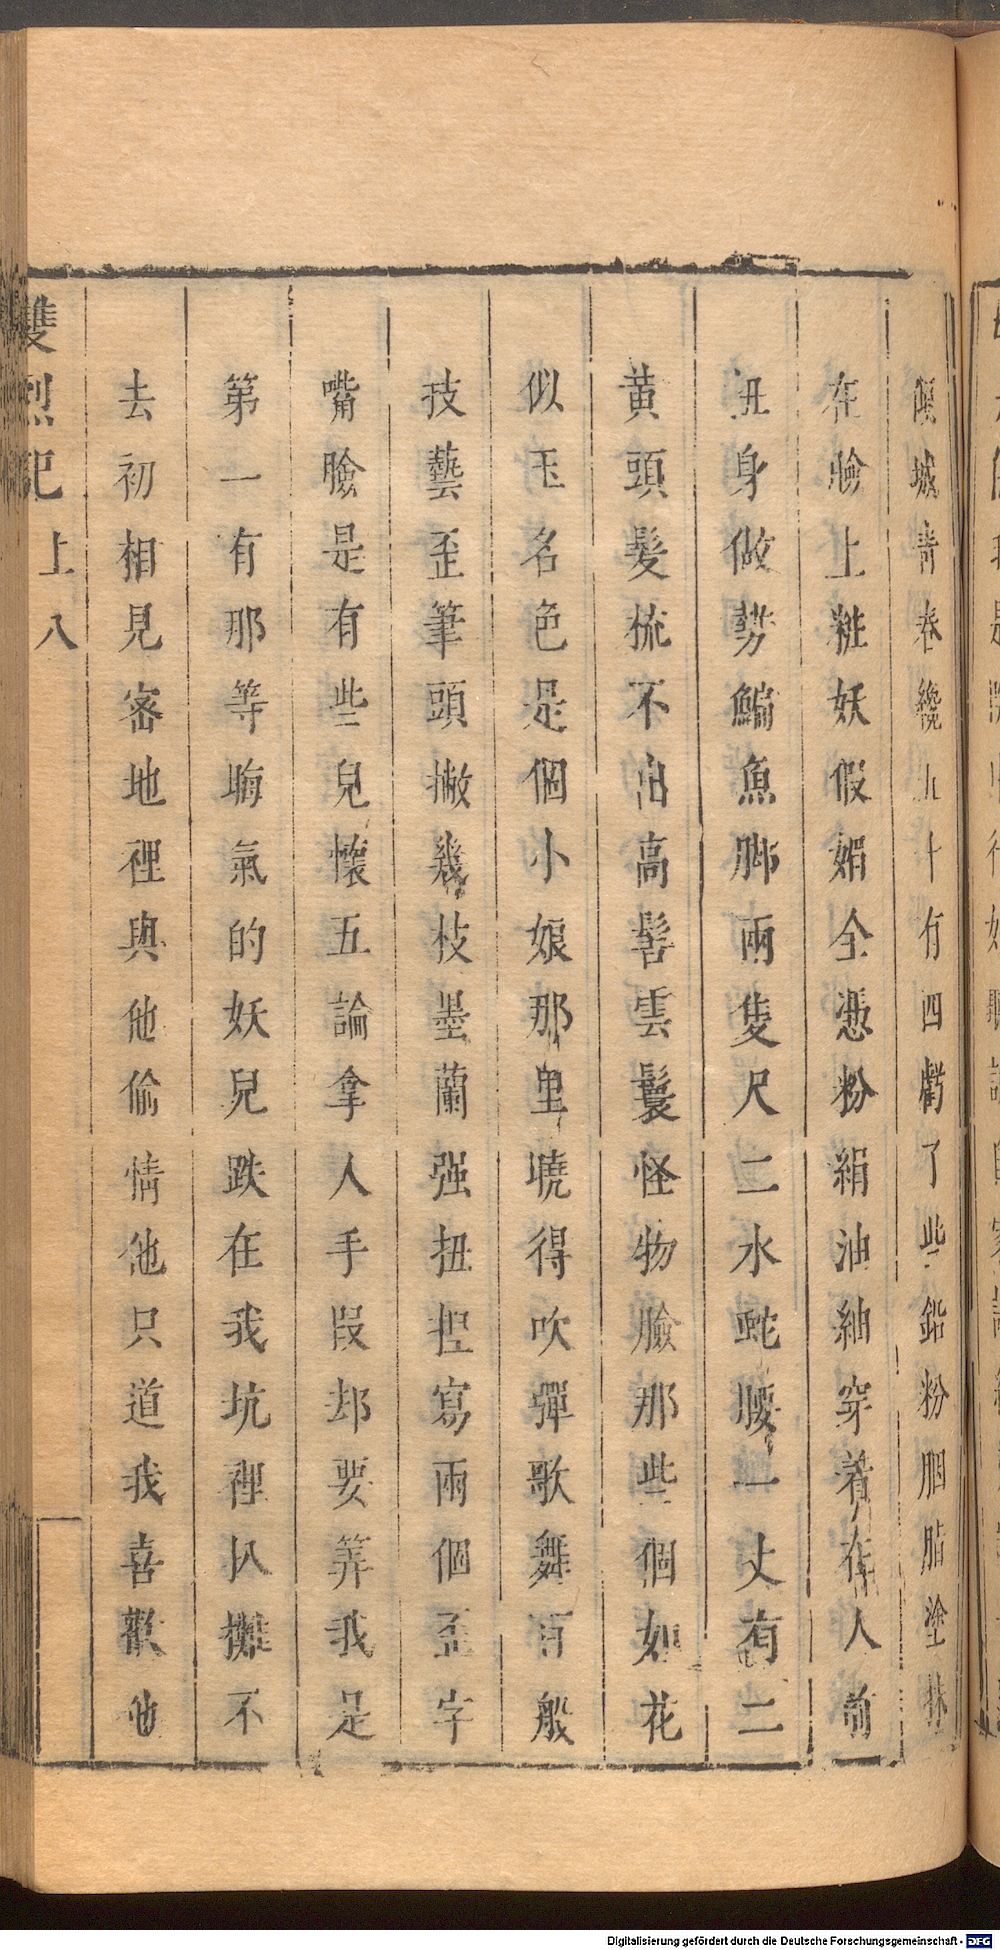 傾城青春纔九十有四虧了些鉛粉胭脂塗抹
在臉上粧妖假媚全憑粉絹油紬穿着在人前
丑身做勢鯿魚脚兩隻尺二水蛇腰一丈有二
黃頭髮梳不出高髻雲鬟怪物臉那些個如花
似玉名色是個小娘那里曉得吹彈歌舞百般
技藝歪筆頭撇幾枝墨蘭强扭揑寫兩個歪字
嘴臉是有些兒懷五論拿人手段却要筭我是
第一有那等晦氣的妖兒跌在我坑裡扒攤不
去初相見宻地裡與他偷情他只道我喜歡他
雙烈記 上 八
Digitalisierung gefördert durch die Deutsche Forschungsgemeinschaft - DFG